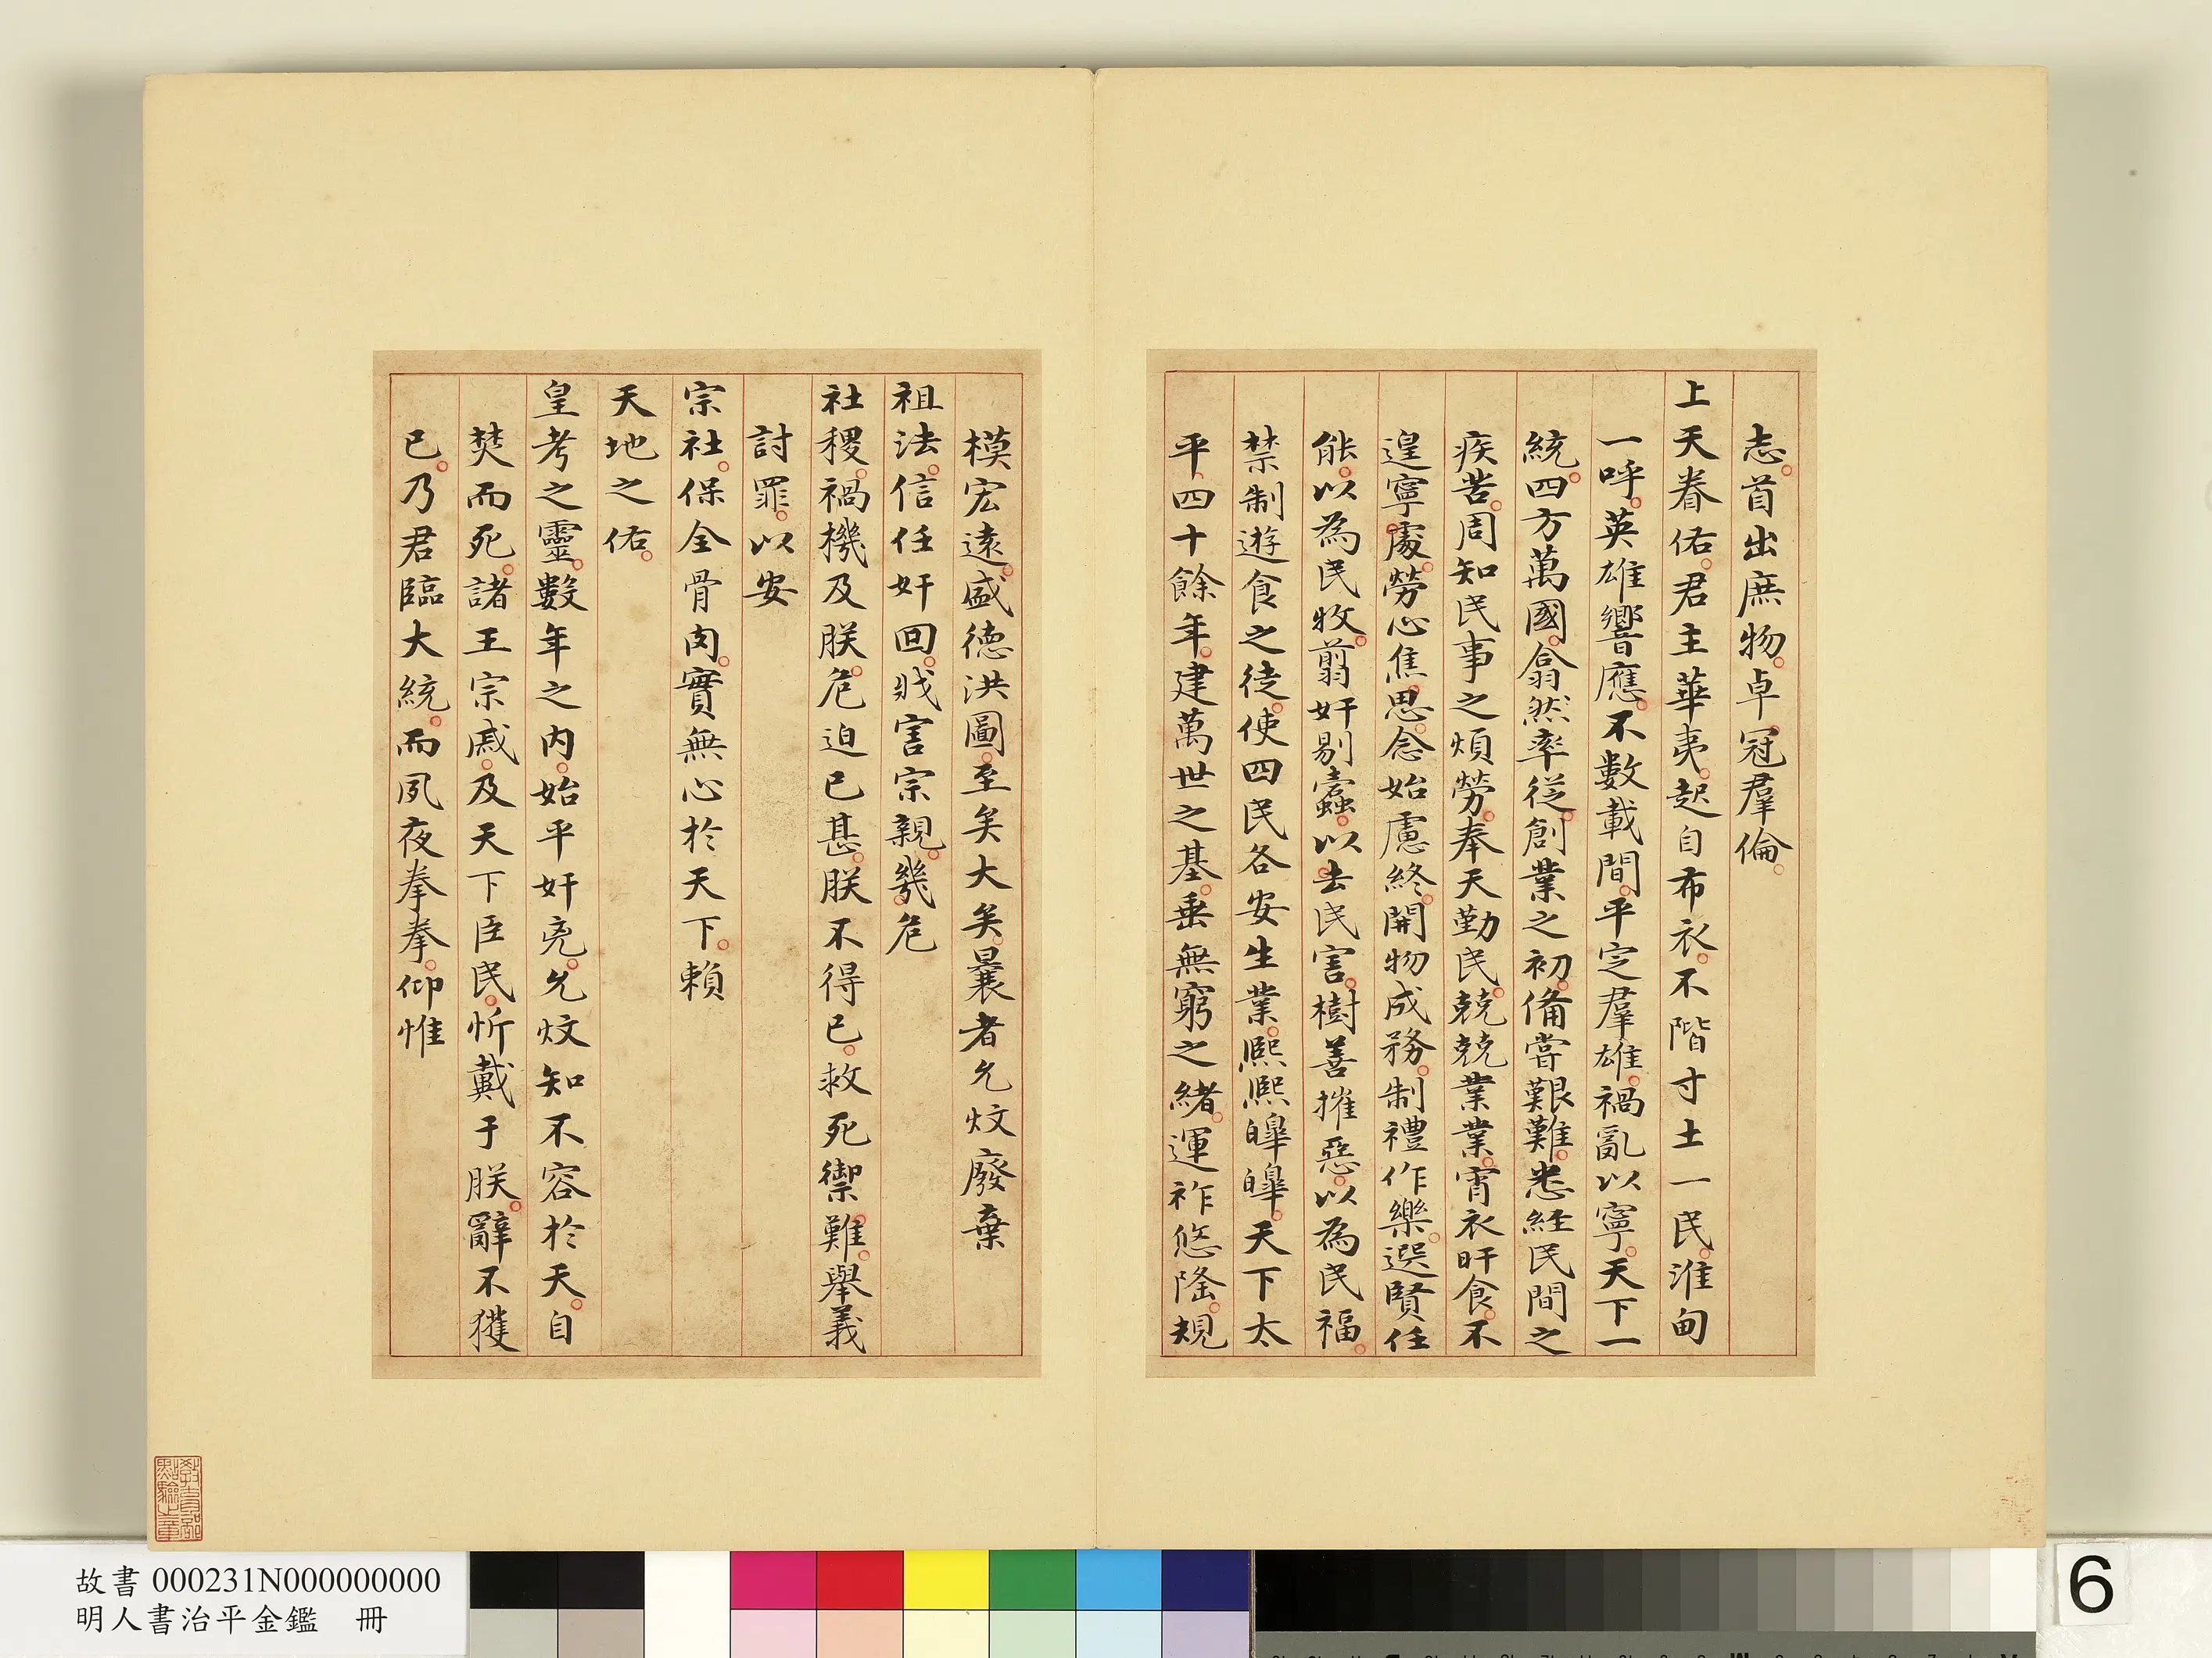 志首出庶物卓冠羣倫
上天眷佑君主華夷起自布衣不階寸土一民淮甸
一呼英雄響應不數載間平定羣雄禍亂以寧天下一
統四方萬國翕然率從創業之初備嘗艱難悉經民間之
疾苦周知民事之煩勞奉天勤民兢兢業業宵衣旰食不
遑寧處勞心焦思念始慮終開物成務制禮作樂選賢任
能以為民牧翦奸剔蠹以去民害樹善摧惡以為民福
禁制遊食之徒使四民各安生業熙熙皞皞天下太
平四十餘年建萬世之基垂無窮之緒運祚悠隆規
模宏遠盛德洪圖至矣大矣曩者允炆廢棄
祖法信任奸回戕害宗親幾危
社稷禍機及朕危迫已甚朕不得已救死禦難舉義
討罪以安
宗社保全骨肉實無心於天下賴
天地之佑
皇考之靈數年之內始平奸兇允炆知不容於天自
焚而死諸王宗戚及天下臣民忻戴于朕辭不獲
已乃君臨大統而夙夜拳拳仰惟
故書 000231N000000000
明人書治平金鑑 冊
6